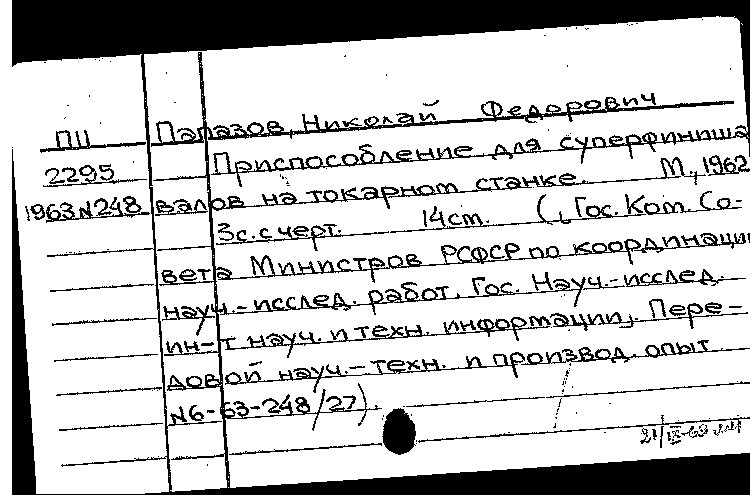 ПЦ Папазов, Николай Федорович
2295 Приспособление для суперфиниша
1963 N 248 валов на токарном станке. М., 1962
3с. с черт. 14см. (, Гос. Ком. Со-
вета Министров РСФСР по координации
науч.-исслед. работ. Гос. Науч.-исслед.
ин-т науч. и техн. информации, Пере-
довой науч.-техн. и производ. опыт
N6-63-248/27).